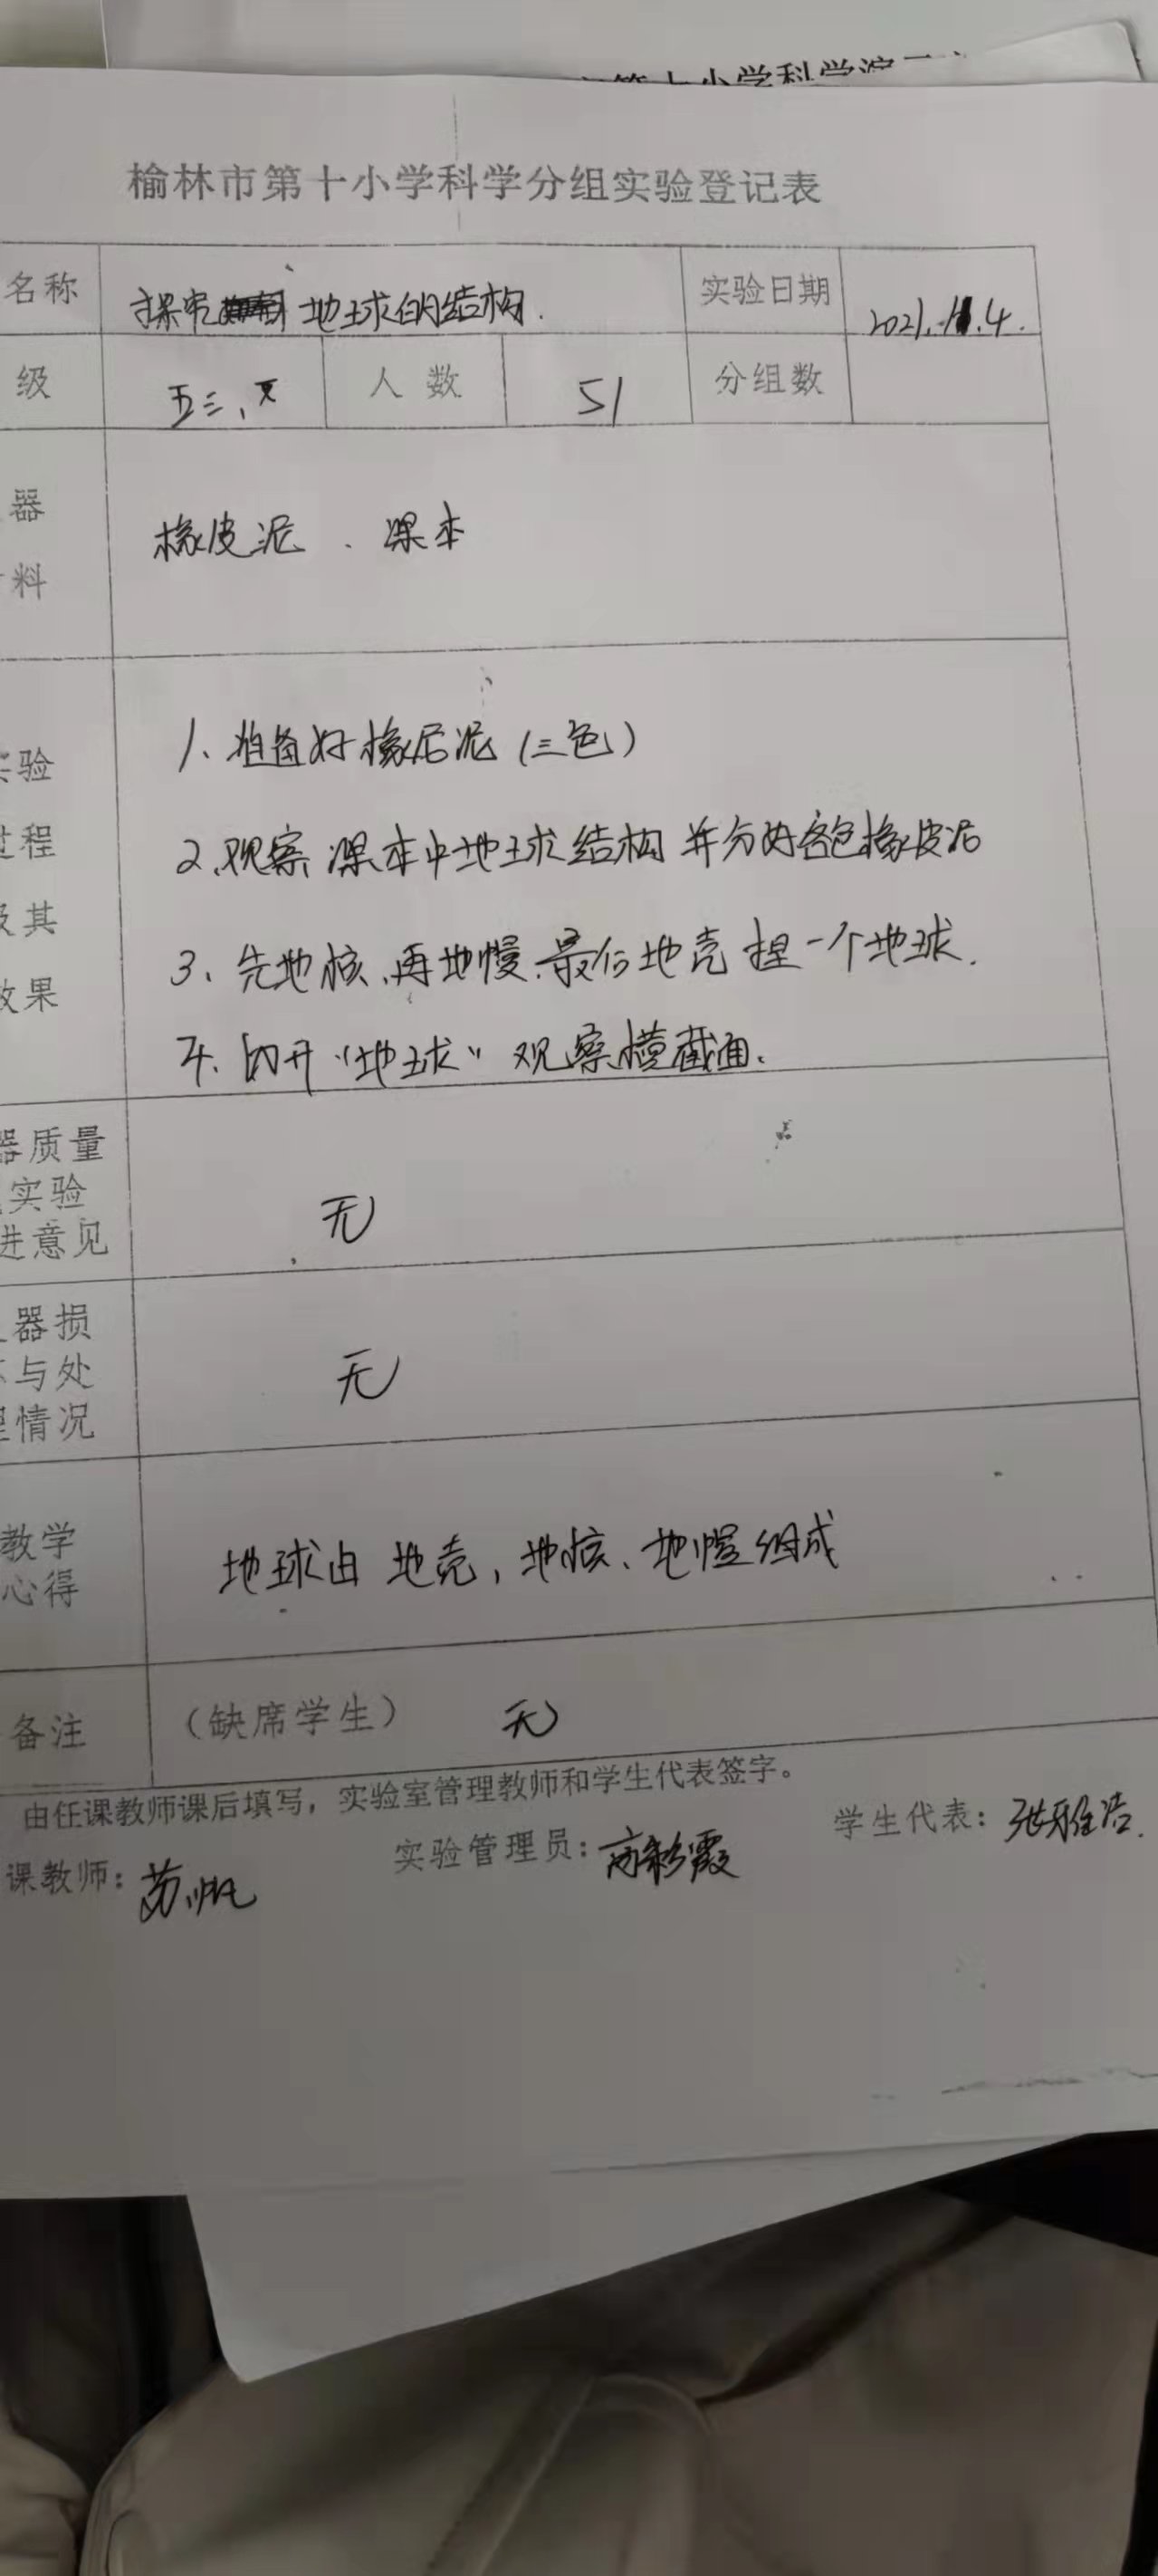 榆林市第十小学科学分组实验登记表
名称 探究 地球的结构. 实验日期 2021.11.4.
级 五三, 人数 51 分组数
器 橡皮泥 、课本
料
1、准备好橡皮泥(三色)
验
过程 2、观察课本中地球结构并分好各色橡皮泥
及其 3、先地核、再地幔、最后地壳捏一个地球.
效果
4、切开“地球”观察横截面.
器质量
实验 无
进意见
器损
与处 无
理情况
教学 地球由地壳,地核、地幔组成
心得
备注 (缺席学生) 无
由任课教师课后填写,实验室管理教师和学生代表签字。
课教师: 苏帆 实验管理员: 高彩霞 学生代表: 张雅洁.